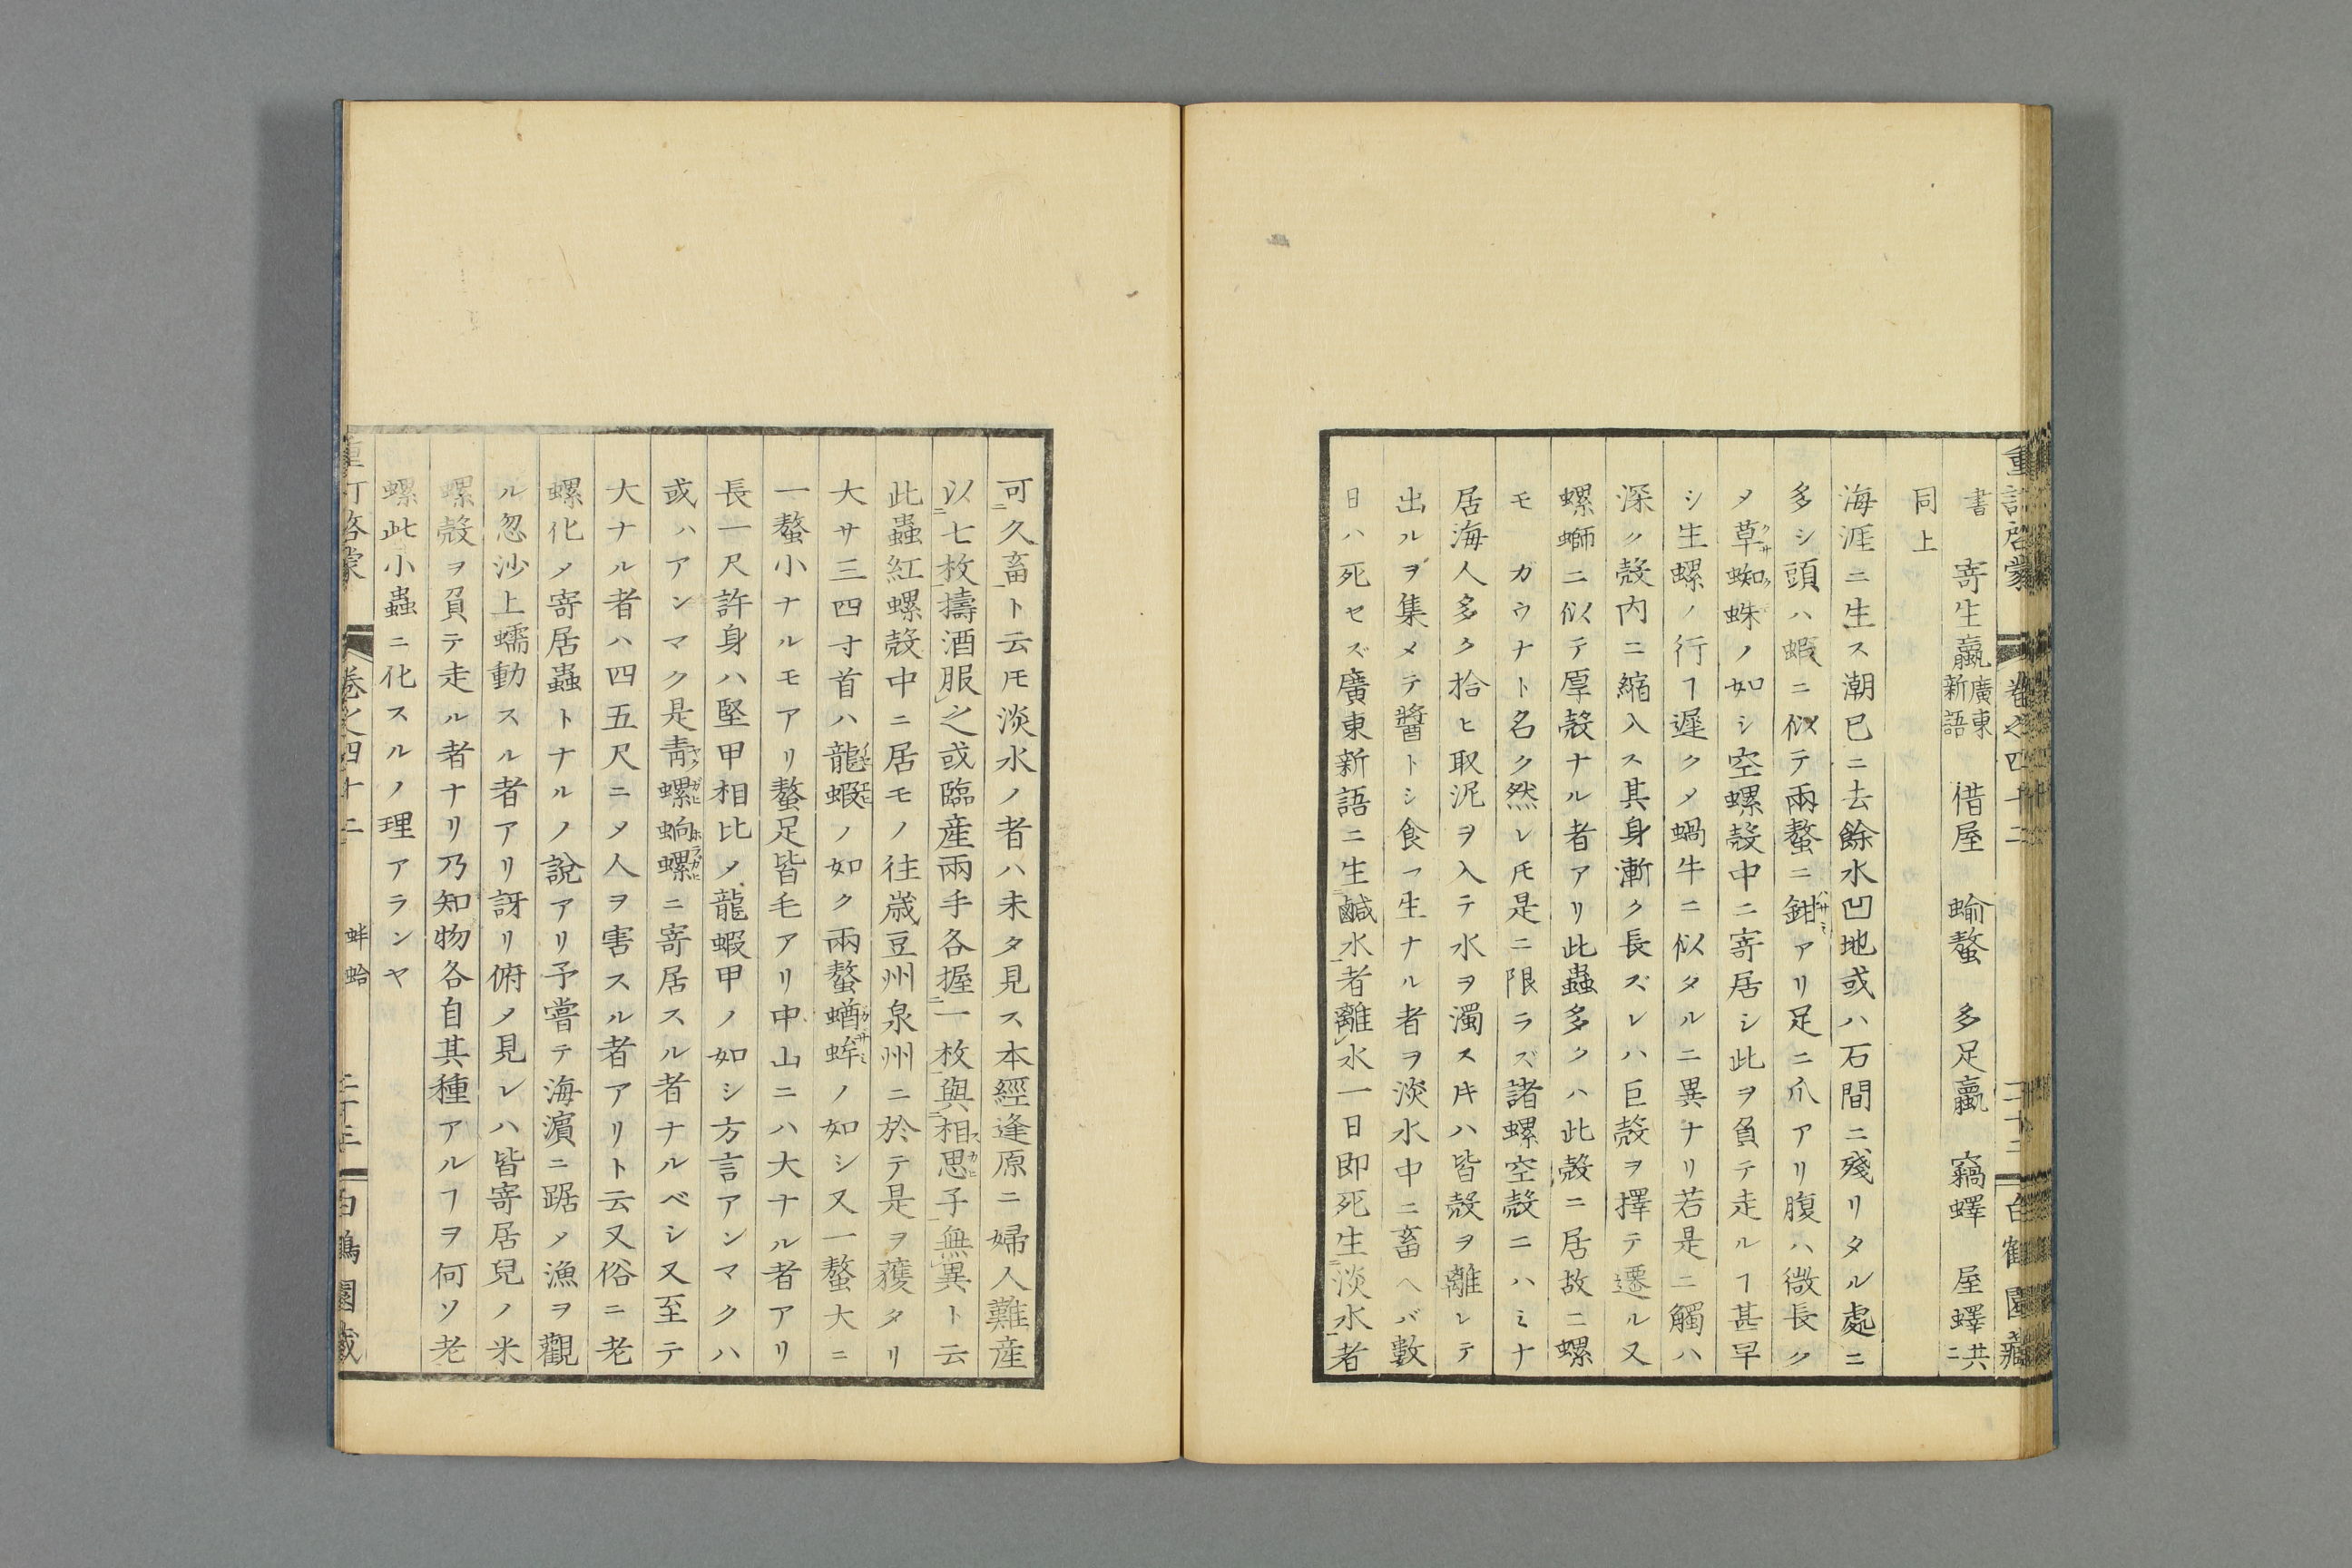 書　寄生蠃廣東新語　借屋　蝓螯　多足蠃　竊蠌　屋蠌共ニ
同上
海涯ニ生ス潮已ニ去餘水凹地或ハ石間ニ殘リタル處ニ
多シ頭ハ蝦ニ似テ兩螯ニ鉗アリ足ニ爪アリ腹ハ微長ク
〆草蜘蛛ノ如シ空螺殻中ニ寄居シ此ヲ負テ走ルヿ甚早
シ生螺ノ行ヿ遲ク〆蝸牛ニ似タルニ異ナリ若是ニ觸ハ
深ク殻内ニ縮入ス其身漸ク長ズレハ巨殻ヲ擇テ遷ル又
螺螄ニ似テ厚殻ナル者アリ此蟲多クハ此殻ニ居故ニ螺
モ　カウナト名ク然レ𪜈是ニ限ラズ諸螺空殻ニハミナ
居海人多ク拾ヒ取泥ヲ入テ水ヲ濁スキハ皆殻ヲ離レテ
出ルヲ集メテ醬トシ食フ生ナル者ヲ淡水中ニ畜ヘバ數
日ハ死セズ廣東新語ニ生鹹水者離水一日即死生淡水者
可久畜ト云𪜈淡水ノ者ハ未タ見ス本經逢原ニ婦人難産
以七枚擣酒服之或臨産兩手各握一枚與相思子無異ト云
此蟲紅螺殻中ニ居モノ往歳豆州泉州ニ於テ是ヲ獲タリ
大サ三四寸首ハ龍蝦ノ如ク兩螯蝤蛑ノ如シ又一螯大ニ
一螯小ナルモアリ螯足皆毛アリ中山ニハ大ナル者アリ
長一尺許身ハ堅甲相比〆龍蝦甲ノ如シ方言アンマクハ
或ハアンマク是靑螺蚼螺ニ寄居スル者ナルベシ又至テ
大ナル者ハ四五尺ニ〆人ヲ害スル者アリト云又俗ニ老
螺化〆寄居蟲トナルノ說アリ予嘗テ海濵ニ踞〆漁ヲ觀
ル忽沙上蠕動スル者アリ訝リ俯〆見レハ皆寄居兒ノ米
螺殻ヲ負テ走ル者ナリ乃知物各自其種アルヿヲ何ソ老
螺此小蟲ニ化スルノ理アランヤ
卷之四十二　蚌蛤